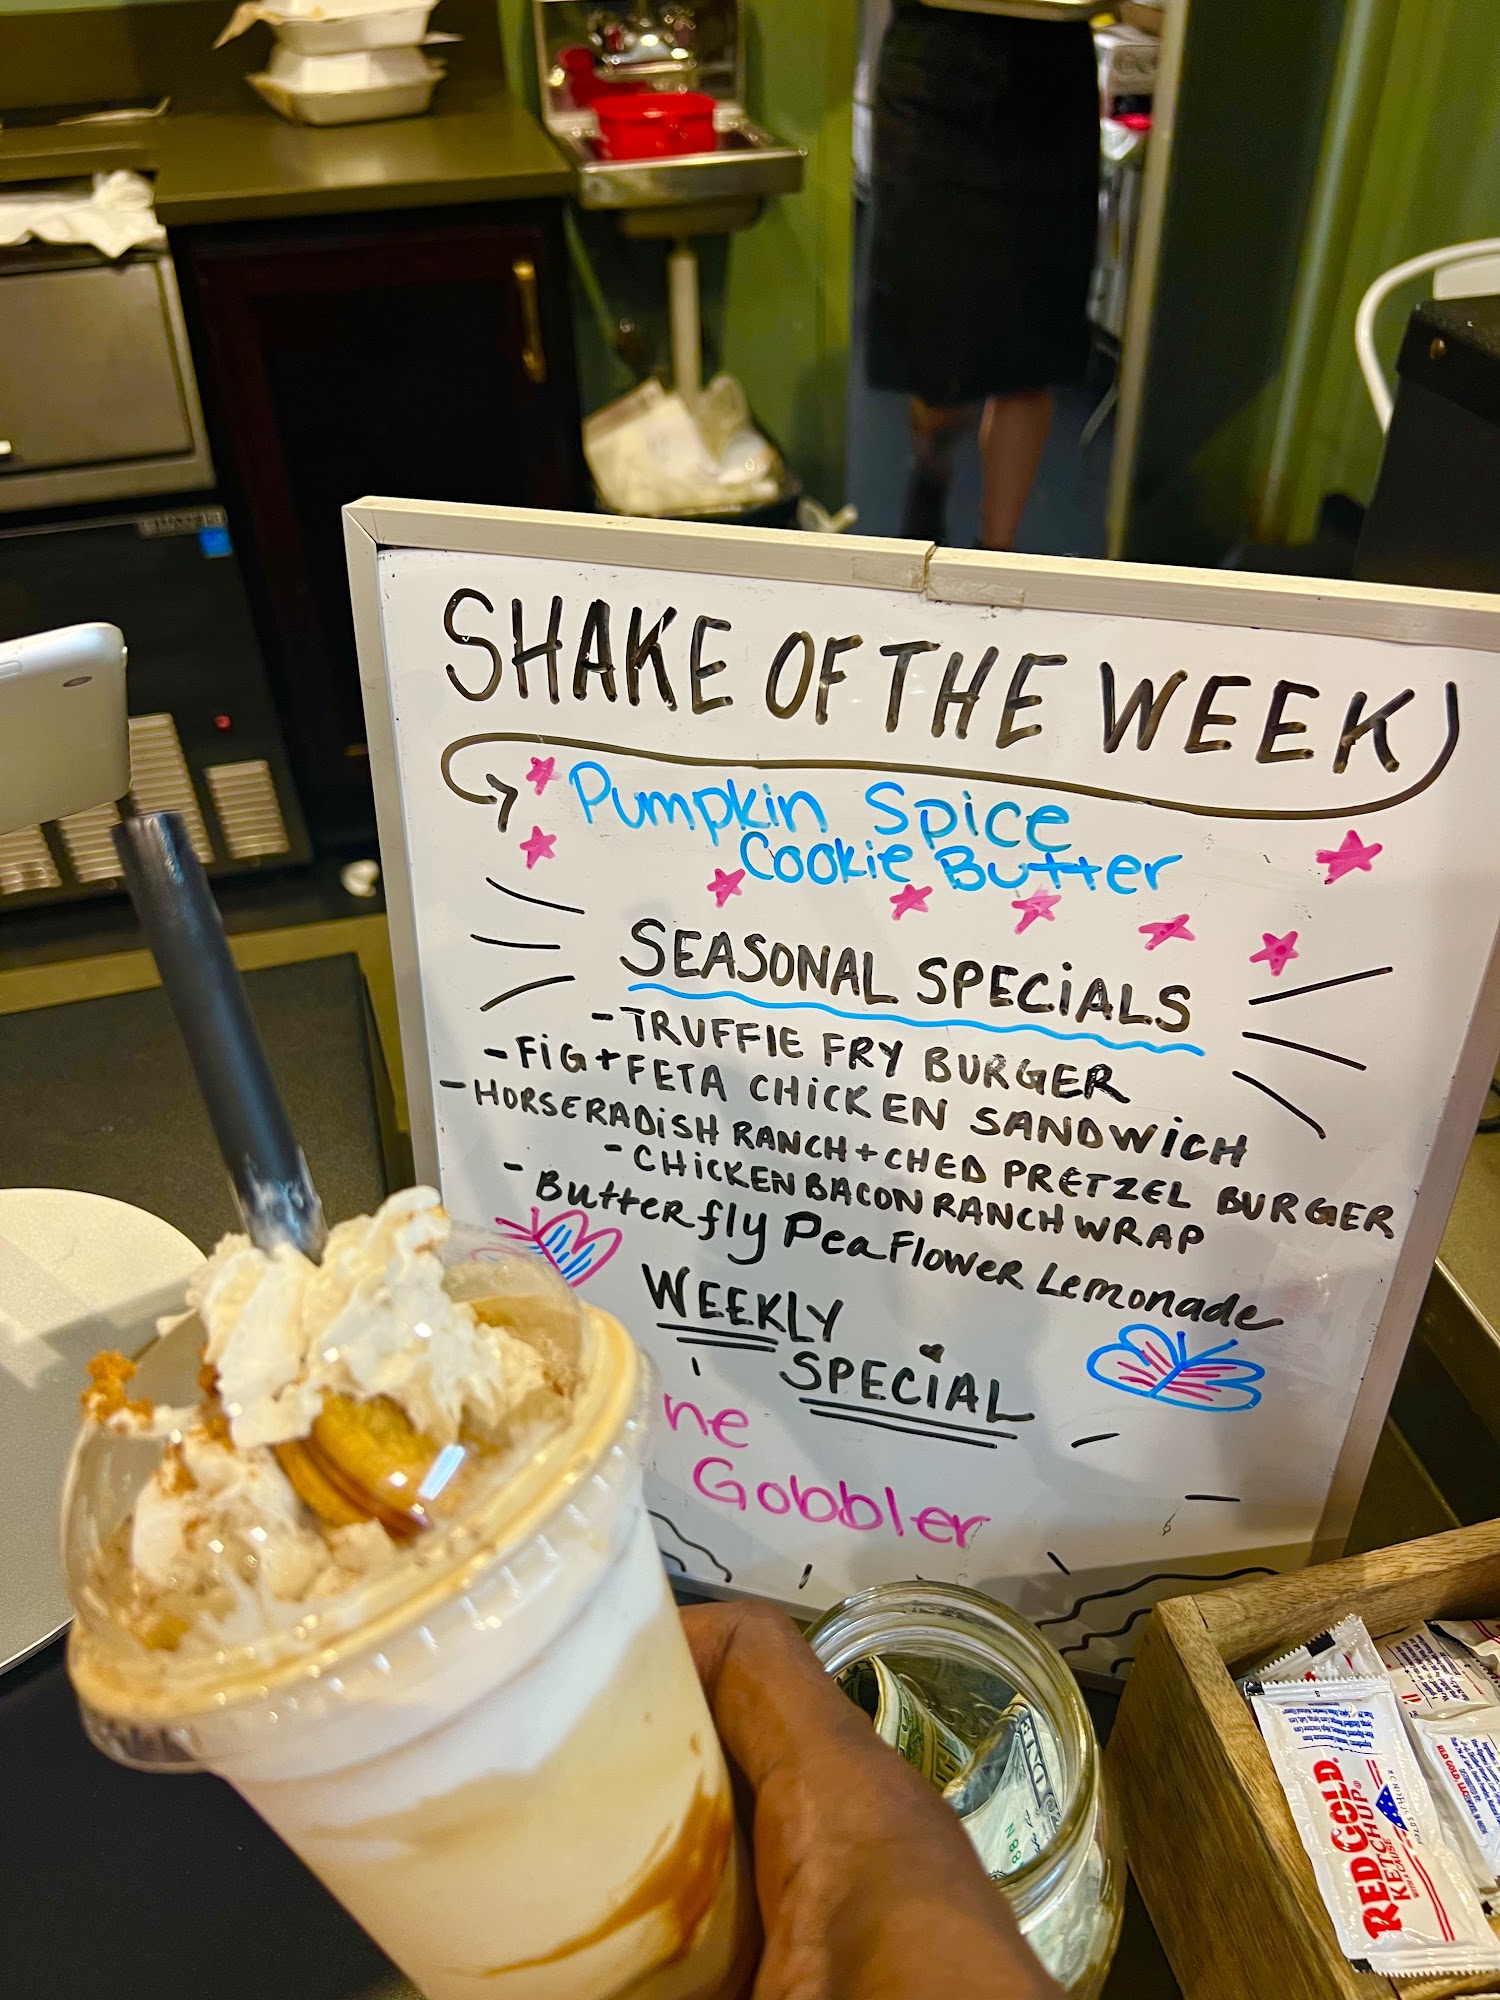 SHAKE OF THE WEEK
Pumpkin Spice
Cookie Butter
SEASONAL SPECiALS
- TRUFFIE FRY BURGER
- FiG + FETA CHiCKEN SANDWiCH
- HORSERADiSH RANCH + CHED PRETZEL BURGER
- CHiCKEN BACON RANCH WRAP
- Butterfly Pea Flower Lemonade
WEEKLY
SPECiAL
ne
Gobbler
RED GOLD
KETCHUP